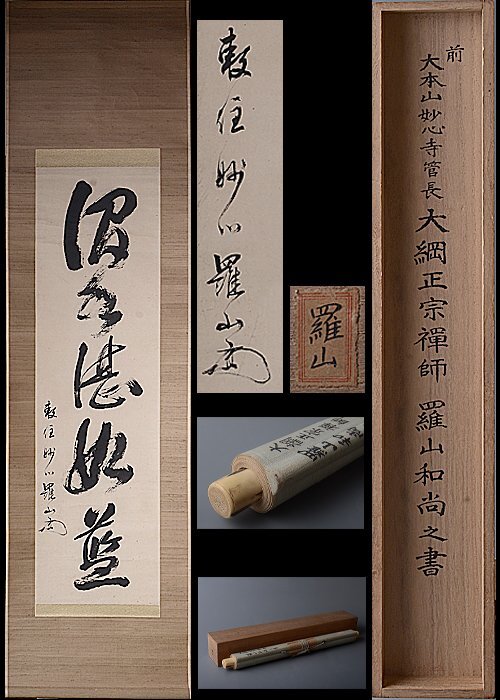 澗水湛如藍
敕住妙心羅山書
敕住妙心羅山書
羅山
前
大本山妙心寺管長大綱正宗禪師 羅山和尚之書